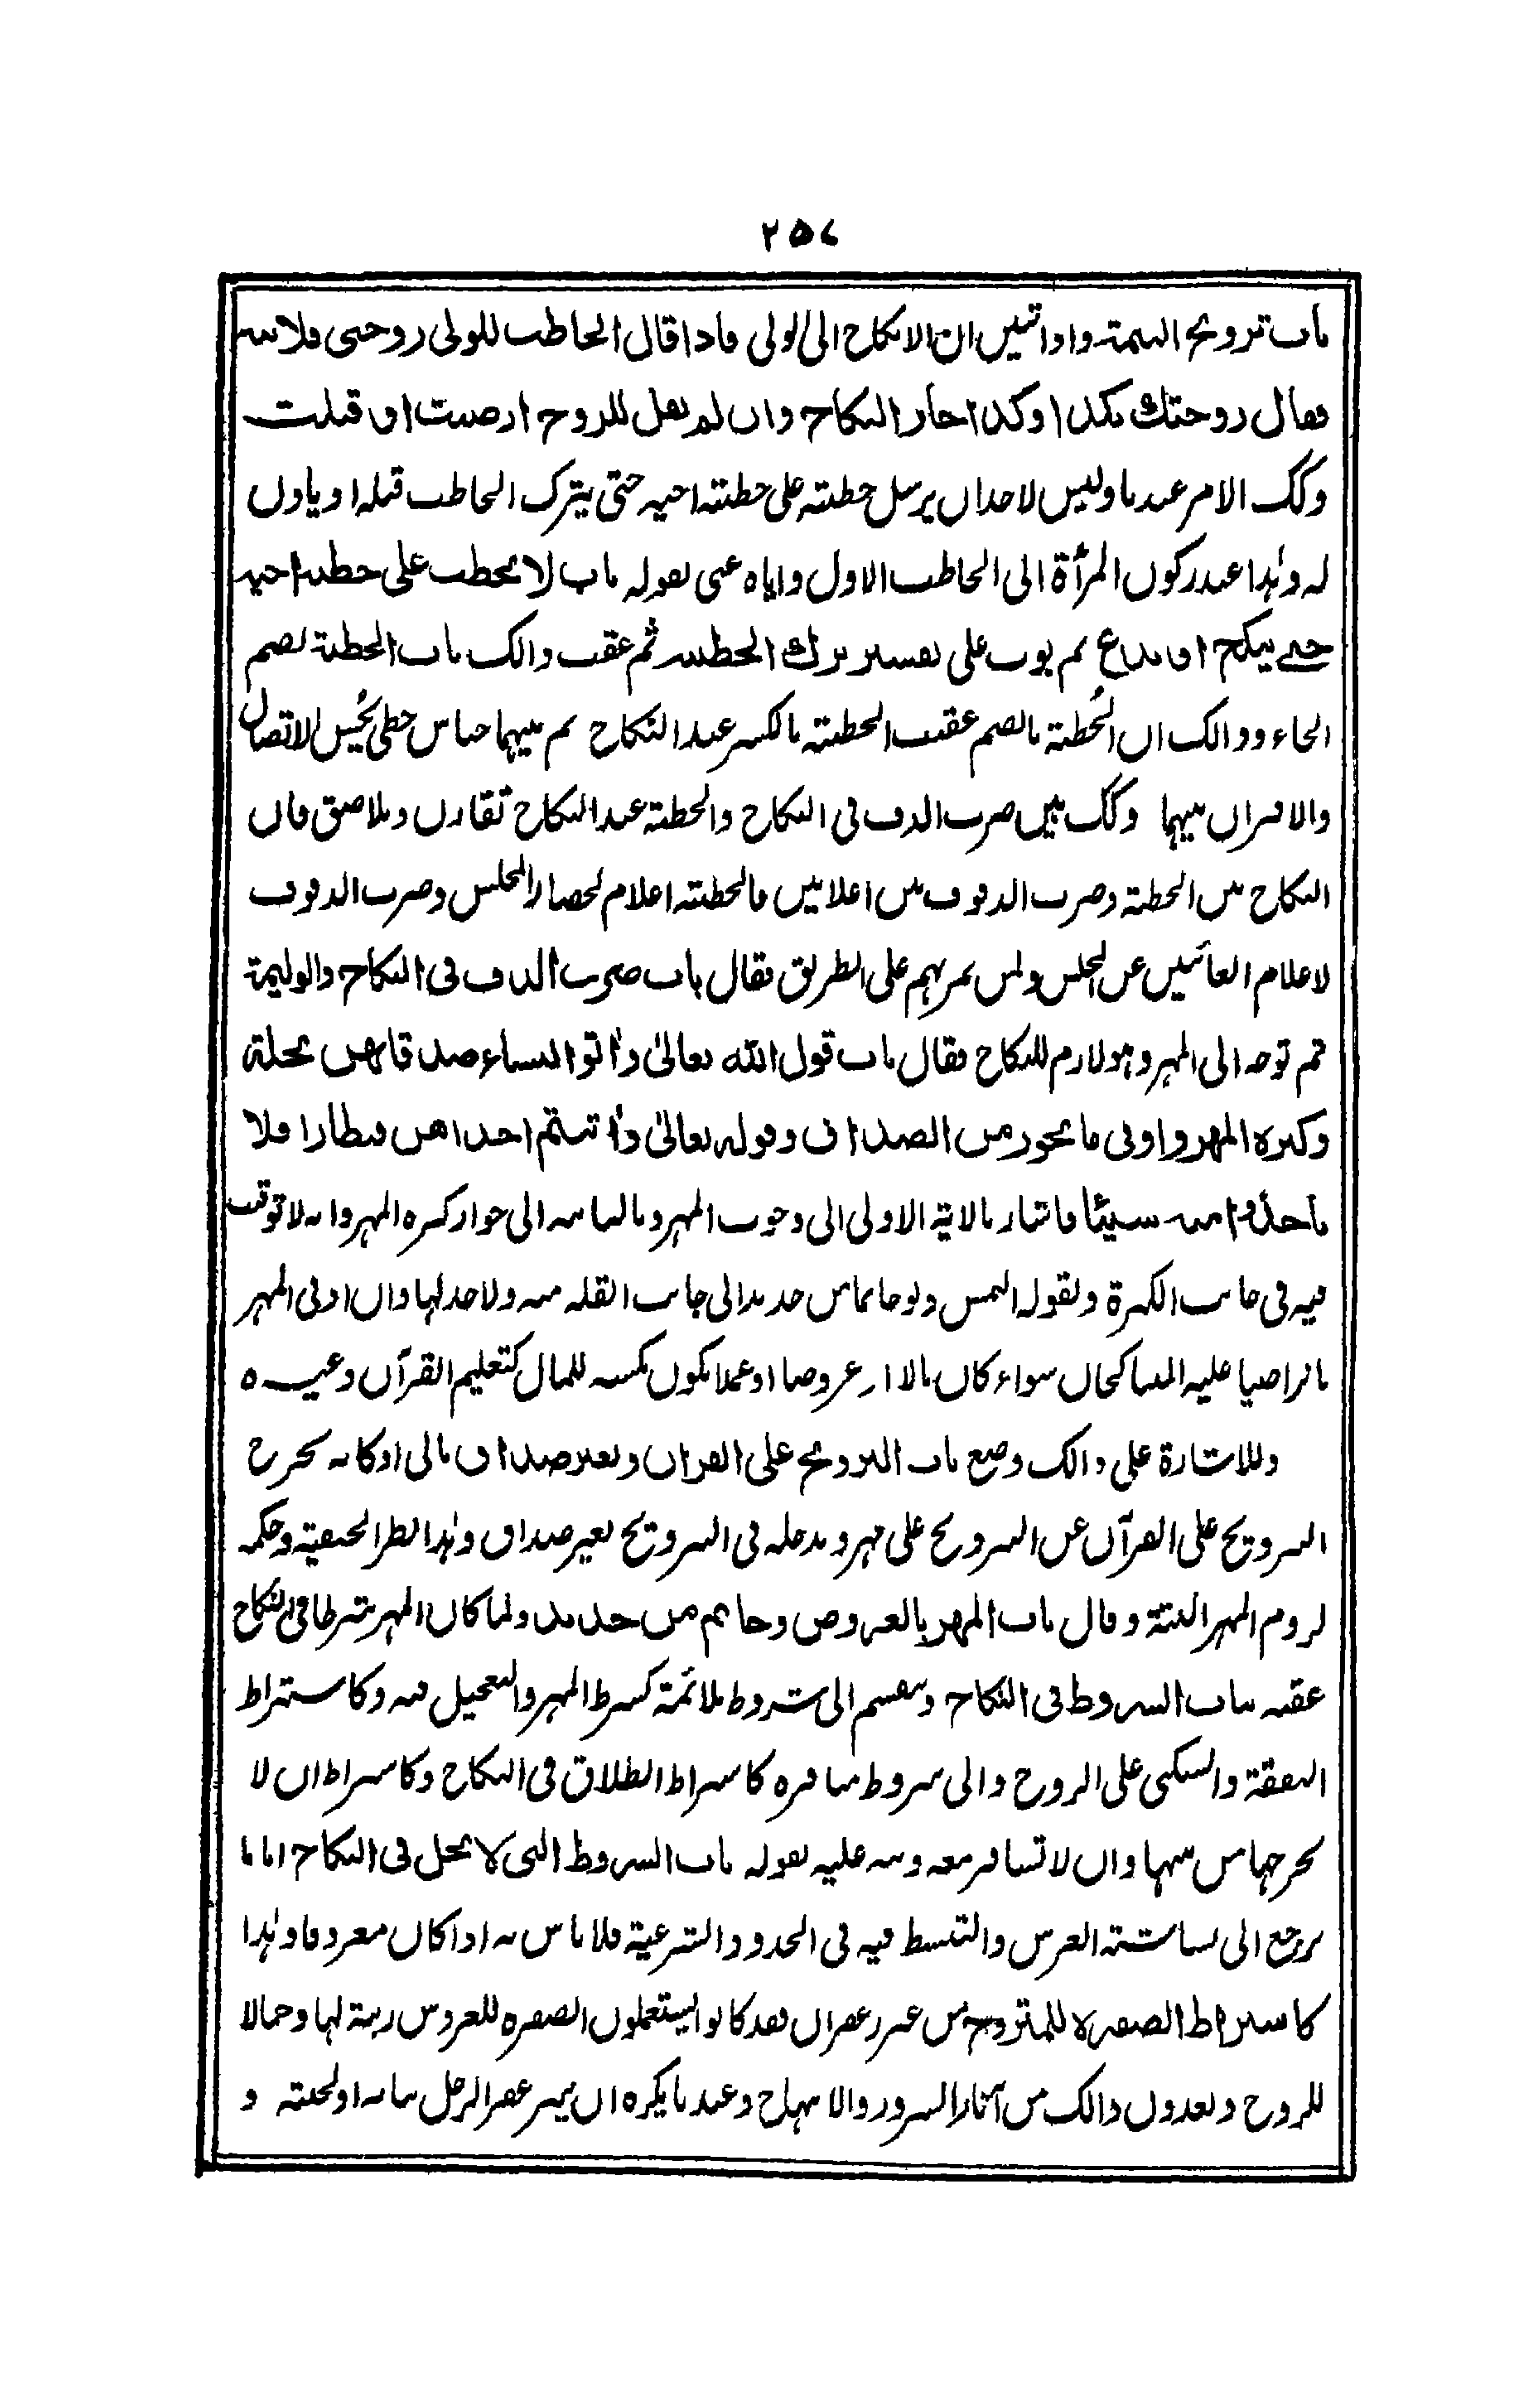 ٢٥٧
باب تزويج اليتيمة واذا تبين ان الانكاح الى الولى فاذا قال الخاطب للولى زوجنى فلانة
فقال زوجتك بكذا وكذا جاز النكاح وان لم يقل للزوج ارضيت او قبلت
وكك الامر عندنا وليس لاحد ان يرسل خطبته على خطبته اخيه حتى يترك الخاطب قبله او ياذن
له وهذا عند ركون المرأة الى الخاطب الاول واياه عنى بقوله باب لا يخطب على خطبة اخيه
حتى ينكح او يدع ثم بوب على تفسير ترك الخطبة ثم عقب ذالك باب الخطبة بضم
الخاء وذالك ان الخُطبة بالضم عقيب الخطبته بالكسر عند النكاح ثم بينهما جناس خطى يُحَسِّن الاتصال
والاقتران بينهما وكك بين ضرب الدف فى النكاح والخطبة عند النكاح تقارن وتلاصق فان
النكاح بين الخطبة وضرب الدفوف بين اعلانين فالخطبته اعلام لحضار المجلس وضرب الدفوف
لاعلام الغائبين عن المجلس ولمن يمر بهم على الطريق فقال باب ضرب الدف فى النكاح والوليمة
ثم توجه الى المهر وهو لازم للنكاح فقال باب قول الله تعالىٰ وأتوا النساء صدقاتهن نحلة
وكثرة المهر وادنى ما يجوز من الصداق وقوله تعالىٰ وأتيتم احداهن قنطارا فلا
تأخذوا منه شيئا فاشار بالاية الاولى الى وجوب المهر وبالثانيه الى جواز كثرة المهر وانه لا توقيت
فيه فى جانب الكثرة وبقوله التمس ولو خاتما من حديد الى جانب القلة منه ولا حد لها وان ادنى المهر
ما تراضيا عليه المتناكحان سواء كان مالا او عروضا او عملا يكون مكسبه للمال كتعليم القرآن وغيره
وللاشارة على ذالك وضع باب التزويج على القران وبغير صداق مالى اذ كانه يخرج
التزويج على القرآن عن التزويج على مهر ويدخله فى التزويج بغير صداق وهذا نظر الحنفية وحكمه
لزوم المهر البتة وقال باب المهر بالعروض وخاتم من حديد ولما كان المهر شرطا فى النكاح
عقبه بباب الشروط فى النكاح وينقسم الى شروط ملائمة كشرط المهر والتعجيل فيه وكاشتراط
النفقة والسكنى على الزوج والى شروط منافرة كاشتراط الطلاق فى النكاح وكاشتراط ان لا
يخرجها من بيتها وان لا تسافر معه ونبه عليه بقوله باب الشروط التى لا تحل فى النكاح اما ما
يرجع الى بشاشته العرس والتبسط فيه فى الحدود الشرعية فلا باس به اذا كان معروفا وهذا
كاشتراط الصفرة للمتزوج من غير زعفران فقد كانوا يستعملون الصفره للعروس زينة لها وجمالا
للزوج ويعدون ذالك من آثار السرور والابتهاج وعندنا يكره ان يتزعفر الرجل ثيابه او لحيته و